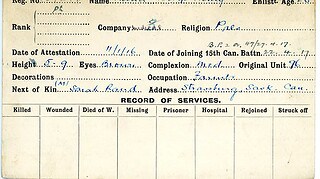 Reg. No.
Enlistt. Age
Rank
Company
Religion Pres
Date of Attestation 11/1/16
Date of Joining 15th Can. Battn. 22-4-17
Height 5-9 Eyes Brown Complexion Med Original Unit 96
Decorations
Occupation Farmer
Next of Kin (M) Sarah Baird Address Strasburg, Sask. Can.
RECORD OF SERVICES.
Killed Wounded Died of W. Missing Prisoner Hospital Rejoined Struck off